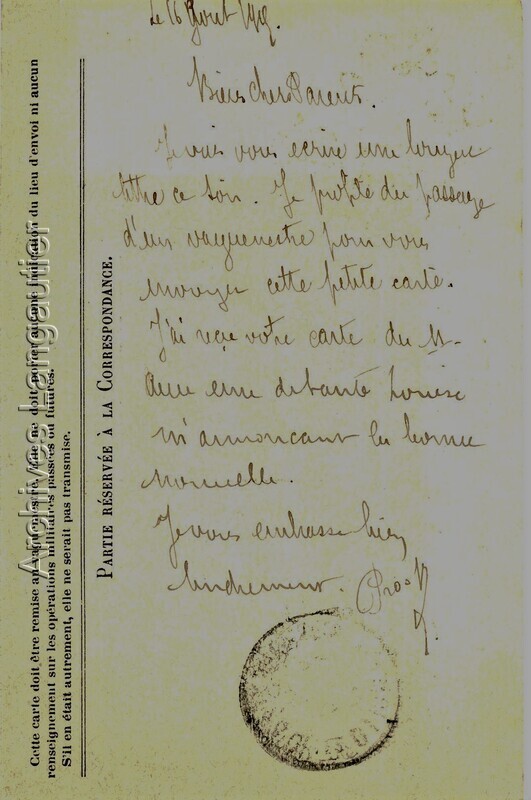 Le 16 Août 19
Biens chers Parents.
Je vais vous ecrire une longue
lettre ce soir. Je profite du passage
d'un vaguemestre pour vous
envoyer cette petite carte.
J'ai reçu votre carte du 11
une de tante Louise
m'annoncant la bonne
nouvelle.
Je vous embrasse bien
tendrement.
PARTIE RÉSERVÉE À LA CORRESPONDANCE.
Cette carte doit être remise au vaguemestre. Elle ne doit porter aucune indication du lieu d'envoi ni aucun
renseignement sur les opérations militaires passées ou futures.
S'il en était autrement, elle ne serait pas transmise.
Archives Langautier